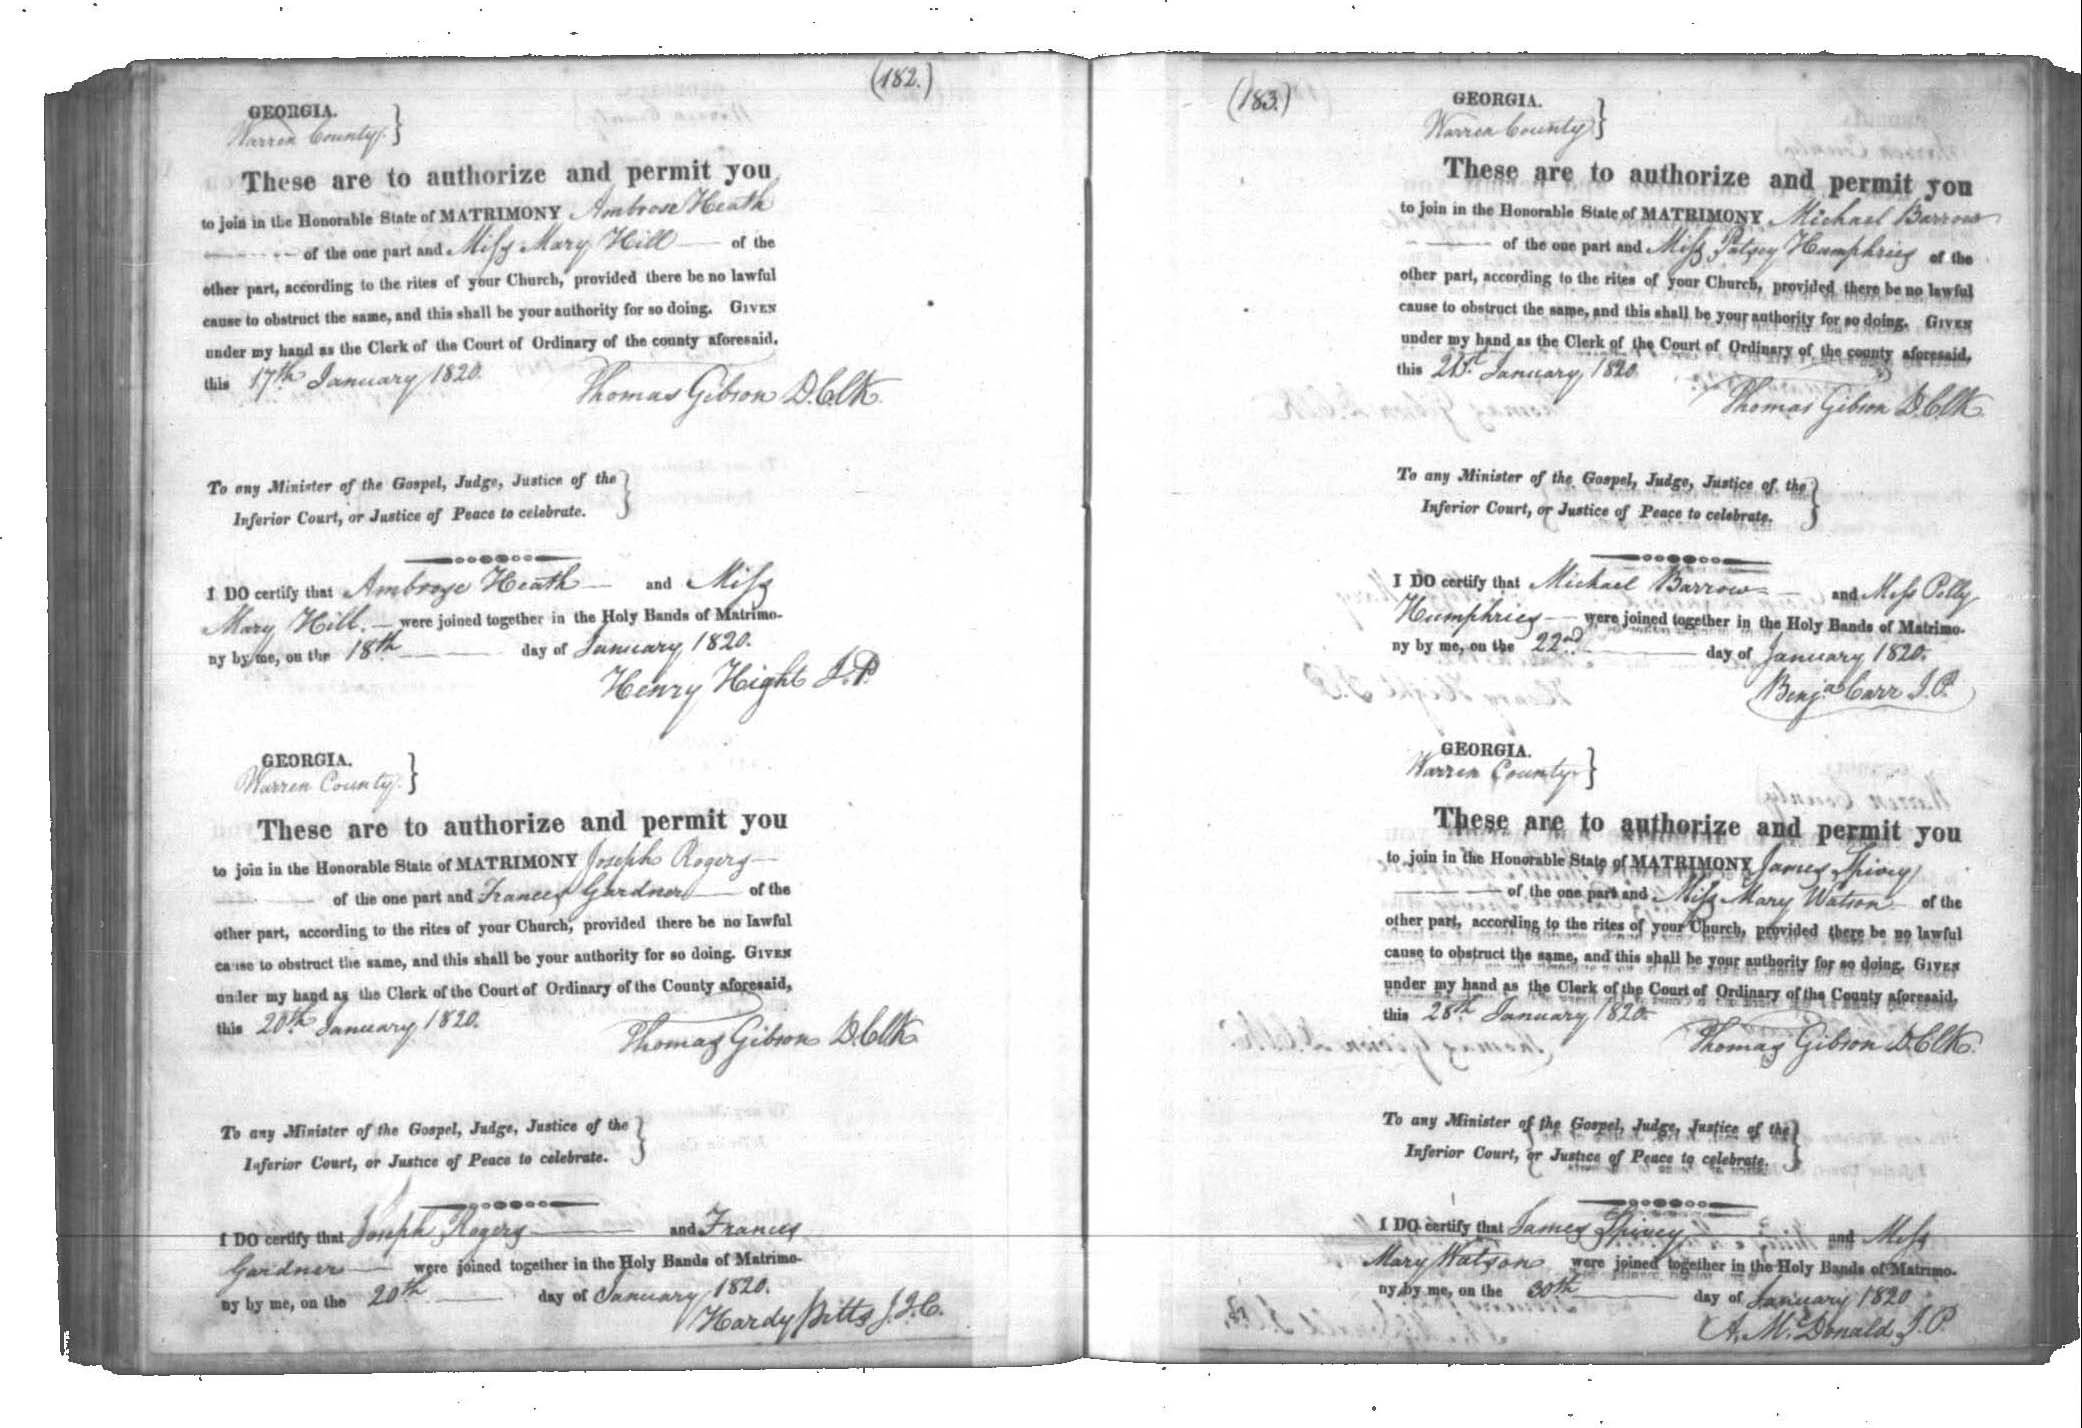 (182.)
GEORGIA.
Warren County. }
These are to authorize and permit you
to join in the Honorable State of MATRIMONY Ambrose Heath
of the one part and Miss Mary Hill — of the
other part, according to the rites of your Church, provided there be no lawful
cause to obstruct the same, and this shall be your authority for so doing. GIVEN
under my hand as the Clerk of the Court of Ordinary of the county aforesaid,
this 17th January 1820.
Thomas Gibson D. Clk.
To any Minister of the Gospel, Judge, Justice of the }
Inferior Court, or Justice of Peace to celebrate.
I DO certify that Ambrose Heath — and Miss
Mary Hill. — were joined together in the Holy Bands of Matrimo-
ny by me, on the 18th — day of January 1820.
Henry Hight J.P.
GEORGIA.
Warren County. }
These are to authorize and permit you
to join in the Honorable State of MATRIMONY Joseph Rogers —
of the one part and Frances Gardner — of the
other part, according to the rites of your Church, provided there be no lawful
cause to obstruct the same, and this shall be your authority for so doing. GIVEN
under my hand as the Clerk of the Court of Ordinary of the County aforesaid,
this 20th January 1820.
Thomas Gibson D. Clk
To any Minister of the Gospel, Judge, Justice of the }
Inferior Court, or Justice of Peace to celebrate.
I DO certify that Joseph Rogers — and Frances
Gardner — were joined together in the Holy Bands of Matrimo-
ny by me, on the 20th — day of January 1820.
Hardy Pitts J.I.C.
(183.)
GEORGIA.
Warren County }
These are to authorize and permit you
to join in the Honorable State of MATRIMONY Michael Barrow
— of the one part and Miss Patsey Humphries of the
other part, according to the rites of your Church, provided there be no lawful
cause to obstruct the same, and this shall be your authority for so doing. GIVEN
under my hand as the Clerk of the Court of Ordinary of the county aforesaid,
this 21st January 1820
Thomas Gibson D. Clk
To any Minister of the Gospel, Judge, Justice of the }
Inferior Court, or Justice of Peace to celebrate.
I DO certify that Michael Barrow — and Miss Polly
Humphries — were joined together in the Holy Bands of Matrimo-
ny by me, on the 22nd — day of January 1820.
Benja Carr J.P.
GEORGIA.
Warren County. }
These are to authorize and permit you
to join in the Honorable State of MATRIMONY James Spivey
— of the one part and Miss Mary Watson — of the
other part, according to the rites of your Church, provided there be no lawful
cause to obstruct the same, and this shall be your authority for so doing. GIVEN
under my hand as the Clerk of the Court of Ordinary of the County aforesaid,
this 28th January 1820.
Thomas Gibson D. Clk.
To any Minister of the Gospel, Judge, Justice of the }
Inferior Court, or Justice of Peace to celebrate.
I DO certify that James Spivey — and Miss
Mary Watson were joined together in the Holy Bands of Matrimo-
ny by me, on the 30th — day of January 1820
A. McDonald J.P.